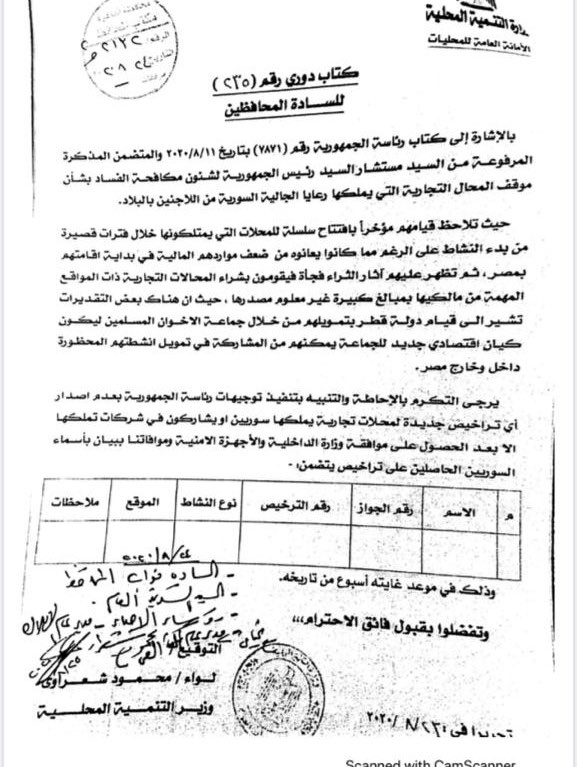 وزارة التنمية المحلية
الأمانة العامة للمحليات
٢١٣٢
٢٤ ٨
كتاب دوري رقم (٢٣٥)
للسادة المحافظين
بالإشارة إلى كتاب رئاسة الجمهورية رقم (٧٨٧١) بتاريخ ٢٠٢٠/٨/١١ والمتضمن المذكرة
المرفوعة من السيد مستشار السيد رئيس الجمهورية لشئون مكافحة الفساد بشأن
موقف المحال التجارية التي يملكها رعايا الجالية السورية من اللاجئين بالبلاد.
حيث تلاحظ قيامهم مؤخراً بافتتاح سلسلة للمحلات التي يمتلكونها خلال فترات قصيرة
من بدء النشاط على الرغم مما كانوا يعانوه من ضعف مواردهم المالية في بداية اقامتهم
بمصر ، ثم تظهر عليهم آثار الثراء فجأة فيقومون بشراء المحالات التجارية ذات المواقع
المهمة من مالكيها بمبالغ كبيرة غير معلوم مصدرها ، حيث ان هناك بعض التقديرات
تشير الى قيام دولة قطر بتمويلهم من خلال جماعة الاخوان المسلمين ليكون
كيان اقتصادي جديد للجماعة يمكنهم من المشاركة في تمويل انشطتهم المحظورة
داخل وخارج مصر .
يرجى التكرم بالإحاطة والتنبيه بتنفيذ توجيهات رئاسة الجمهورية بعدم اصدار
أي تراخيص جديدة لمحلات تجارية يملكها سوريين او يشاركون في شركات تملكها
الا بعد الحصول على موافقة وزارة الداخلية والأجهزة الامنية وموافاتنا ببيان بأسماء
السوريين الحاصلين على تراخيص يتضمن:-
م الاسم رقم الجواز رقم الترخيص نوع النشاط الموقع ملاحظات
وذلك في موعد غايته أسبوع من تاريخه.
٢٠٢٠/٨/٢٤
- السادة نواب المحافظ
- السيد السكرتير العام
وتفضلوا بقبول فائق الاحترام،،،
التوقيع/
لواء / محمود شعراوى
وزير التنمية المحلية
تحريرا في: ٢٠٢٠/٨/٢٣
Scanned with CamScanner